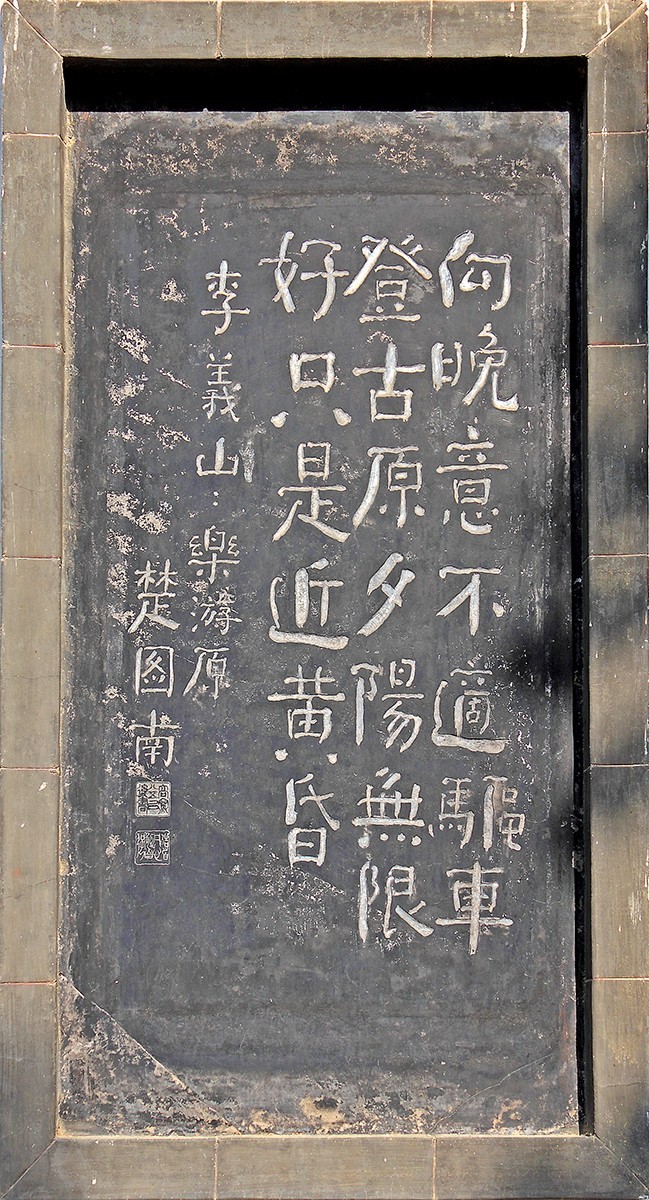 向晚意不適驅車
登古原夕陽無限
好只是近黄昏
李義山：樂游原
楚图南